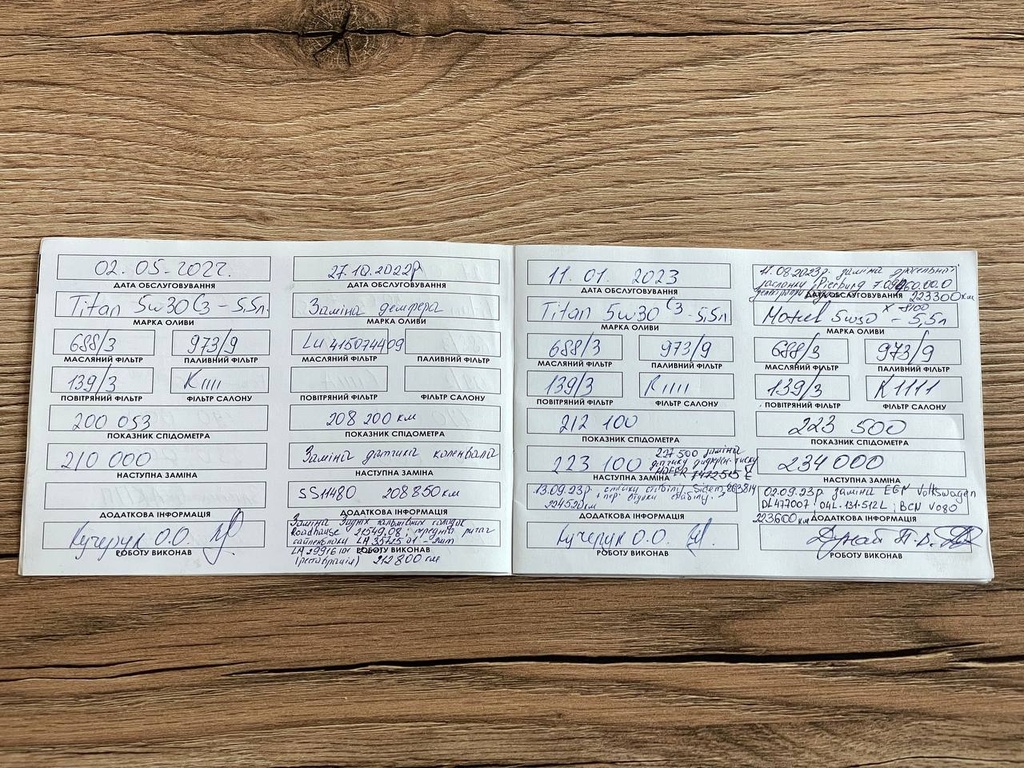 02.05-2022.
ДАТА ОБСЛУГОВУВАННЯ
Titan 5w30 C3 - 5,5л.
МАРКА ОЛИВИ
688/3 973/9
МАСЛЯНИЙ ФІЛЬТР ПАЛИВНИЙ ФІЛЬТР
139/3 К1111
ПОВІТРЯНИЙ ФІЛЬТР ФІЛЬТР САЛОНУ
200 053
ПОКАЗНИК СПІДОМЕТРА
210 000
НАСТУПНА ЗАМІНА
ДОДАТКОВА ІНФОРМАЦІЯ
Кучерук О.О.
РОБОТУ ВИКОНАВ
27.10.2022р
ДАТА ОБСЛУГОВУВАННЯ
Заміна демфера
МАРКА ОЛИВИ
Lu 415074409
МАСЛЯНИЙ ФІЛЬТР ПАЛИВНИЙ ФІЛЬТР
ПОВІТРЯНИЙ ФІЛЬТР ФІЛЬТР САЛОНУ
208 200 км
ПОКАЗНИК СПІДОМЕТРА
Заміна датчика коленвала
НАСТУПНА ЗАМІНА
SS11480 208 850 км
ДОДАТКОВА ІНФОРМАЦІЯ
Заміна задніх гальмівних
Roadhouse 21549.08
сайлентблоки
РОБОТУ ВИКОНАВ
(реставрація) 212 800 км
11.01 2023
ДАТА ОБСЛУГОВУВАННЯ
Titan 5w30 C3 - 5,5л
МАРКА ОЛИВИ
688/3 973/9
МАСЛЯНИЙ ФІЛЬТР ПАЛИВНИЙ ФІЛЬТР
139/3 К1111
ПОВІТРЯНИЙ ФІЛЬТР ФІЛЬТР САЛОНУ
212 100
ПОКАЗНИК СПІДОМЕТРА
227 500 заміна
223 100 датчику
НАСТУПНА ЗАМІНА
13.09.23р
224520км
ДОДАТКОВА ІНФОРМАЦІЯ
Кучерук О.О.
РОБОТУ ВИКОНАВ
11.08.2023р. заміна дросельної
заслонки Pierburg
ДАТА ОБСЛУГОВУВАННЯ 223300км
Motul 5w30 X-8100 - 5,5л
МАРКА ОЛИВИ
688/3 973/9
МАСЛЯНИЙ ФІЛЬТР ПАЛИВНИЙ ФІЛЬТР
139/3 К1111
ПОВІТРЯНИЙ ФІЛЬТР ФІЛЬТР САЛОНУ
223 500
ПОКАЗНИК СПІДОМЕТРА
234 000
НАСТУПНА ЗАМІНА
02.09.23р заміна EGR Volkswagen
DL477007; 04L-131-512L; BCN V080
223600км ДОДАТКОВА ІНФОРМАЦІЯ
Дунай П.В.
РОБОТУ ВИКОНАВ